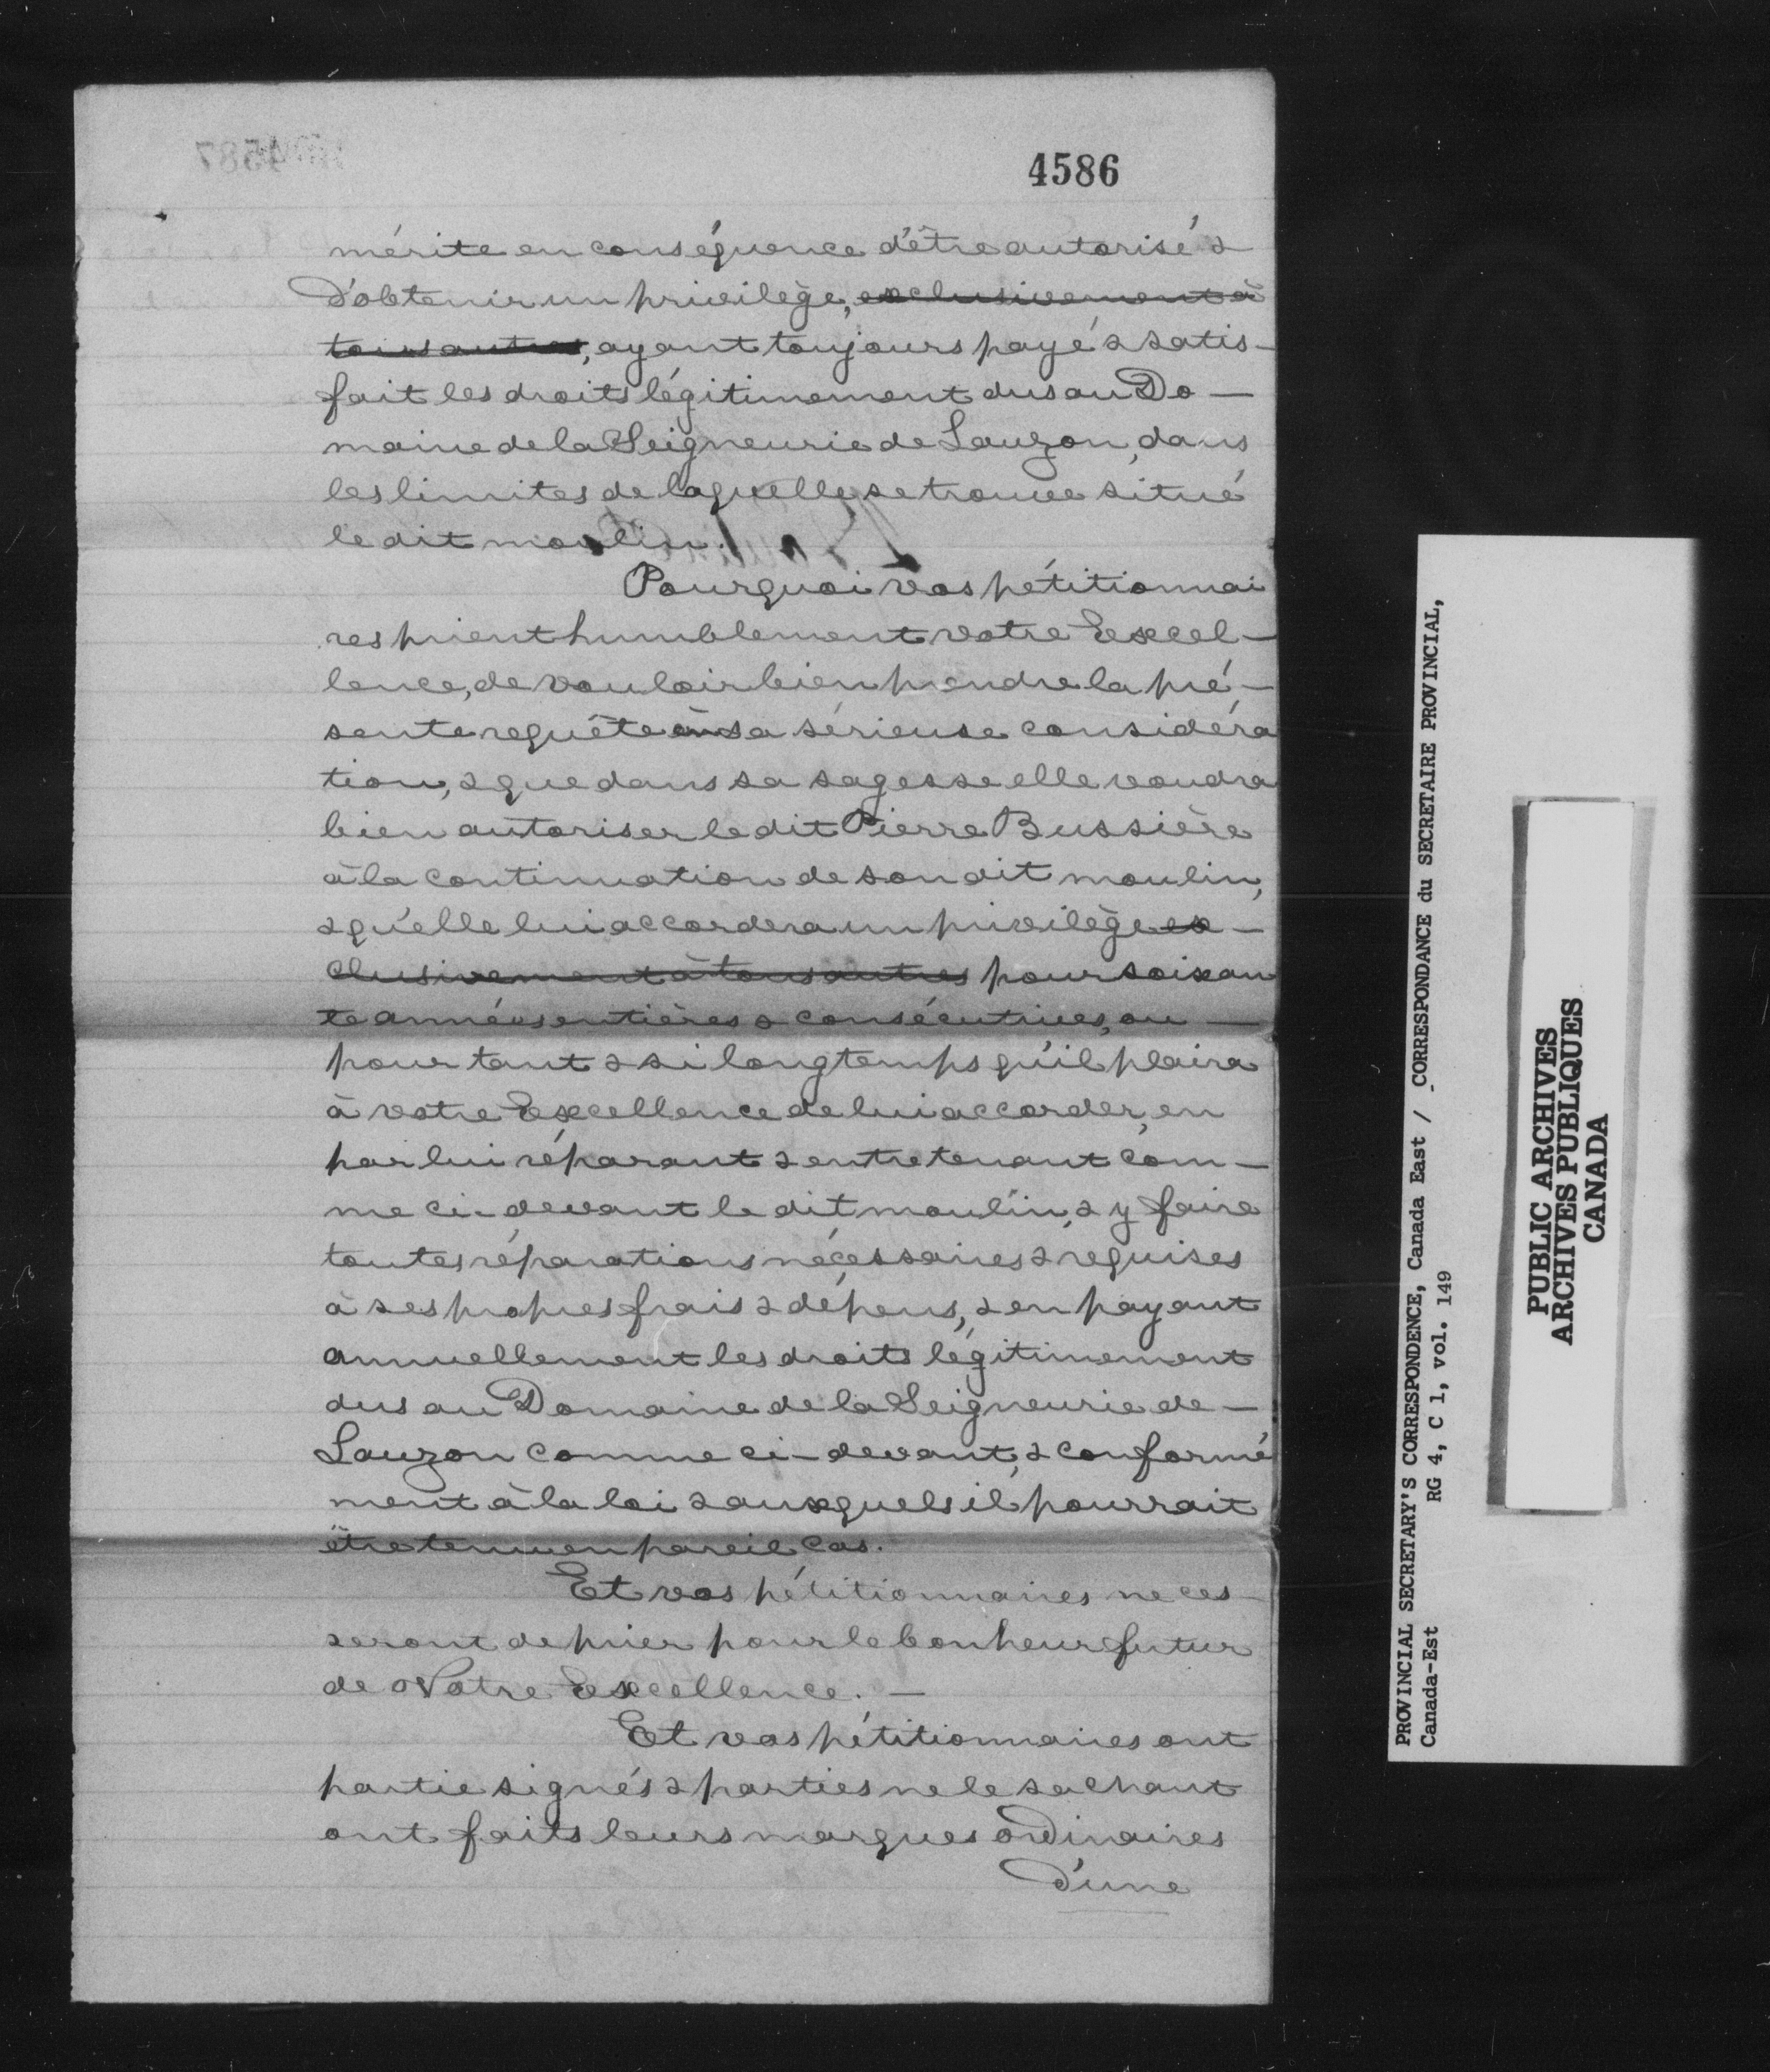 4586
mérite en conséquence d'être autorisé &
d'obtenir un privilège, exclusivement à
tous autres, ayant toujours payé & satis-
fait les droits légitimement dus au Do-
maine de la Seigneurie de Lauzon, dans
les limites de laquelle se trouve situé
le dit moulin.
Pourquoi vos pétitionnai
res prient humblement votre Excel-
lence, de vouloir bien prendre la pré-
sente requête en sa sérieuse considéra
tion, & que dans sa sagesse elle voudra
bien autoriser le dit Pierre Bussière
à la continuation de son dit moulin,
& qu'elle lui accordera un privilège ex-
clusivement à tous autres pour soixan
te années entières & consécutives, ou
pour tant & si longtemps qu'il plaira
à votre Excellence de lui accorder, en
par lui réparant & entretenant com-
me ci-devant le dit moulin, & y faire
toutes réparations nécessaires & requises
à ses propres frais & dépens, & en payant
annuellement les droits légitimement
dus au Domaine de la Seigneurie de
Lauzon comme ci-devant, & conformé
ment à la loi & auxquels il pourrait
être tenu en pareil cas.
Et vos pétitionnaires ne ces-
seront de prier pour le bonheur futur
de Votre Excellence. —
Et vos pétitionnaires ont
partie signés & parties ne le sachant
ont faits leurs marques ordinaires
d'une
4587
PROVINCIAL SECRETARY'S CORRESPONDENCE, Canada East / CORRESPONDANCE du SECRETAIRE PROVINCIAL,
Canada-Est RG 4, C 1, vol. 149
PUBLIC ARCHIVES
ARCHIVES PUBLIQUES
CANADA